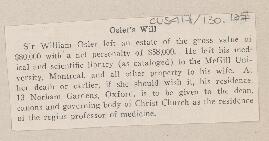 CUS417/130.
Osler's Will
Sir William Osler left an estate of the gross value of
$80,000 with a net personalty of $58,000. He left his med-
ical and scientific library (as cataloged) to the McGill Uni-
versity, Montreal, and all other property to his wife. At
her death or earlier, if she should wish it, his residence,
13 Norham Gardens, Oxford, is to be given to the dean,
canons and governing body of Christ Church as the residence
of the regius professor of medicine.